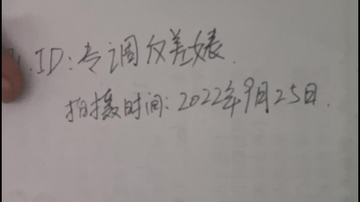 ID:专调仅差婊
拍摄时间:2022年9月25日.